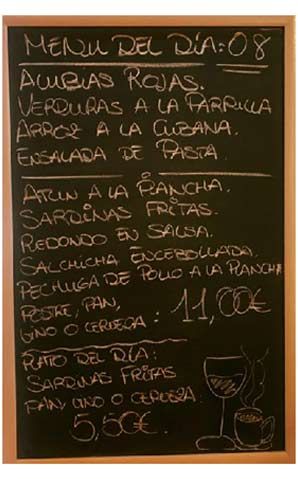 MENU DEL DÍA: 08
ALUBIAS ROJAS.
VERDURAS A LA PARRILLA
ARROZ A LA CUBANA.
ENSALADA DE PASTA.
ATUN A LA PLANCHA.
SARDINAS FRITAS.
REDONDO EN SALSA.
SALCHICHA ENCEBOLLADA.
PECHUGA DE POLLO A LA PLANCHA
POSTRE, PAN,
VINO O CERVEZA: 11,00€
PLATO DEL DÍA:
SARDINAS FRITAS
PAN, VINO O CERVEZA.
5,50€.